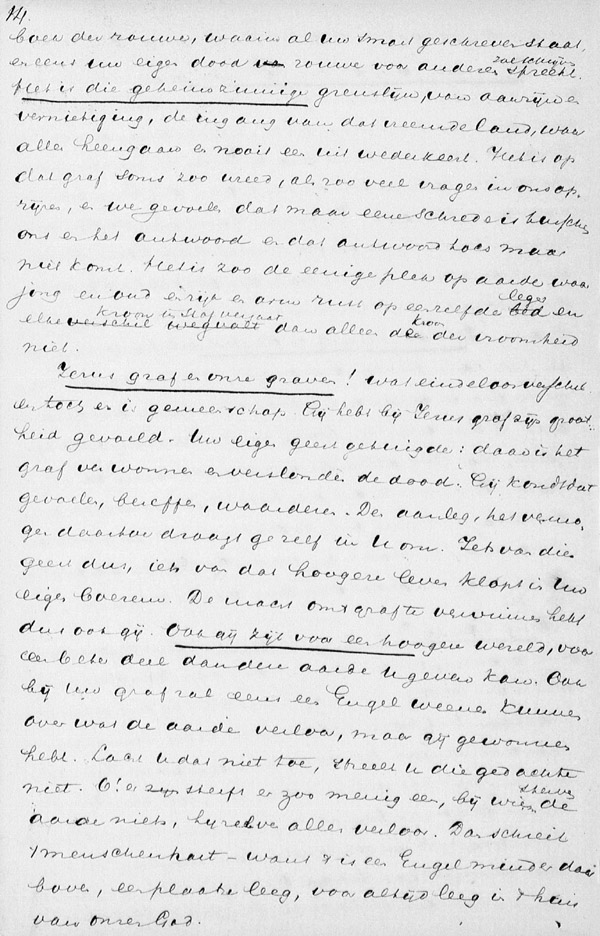 14.
boek der rouwe, waarin al uw smart geschreven staat,
en eens uw eigen dood rouwe voor anderen zal schrijven spreekt.
Het is die geheimzinnige grenslijn van aanzijn en
vernietiging, de ingang van dat vreemde land, waar
allen heengaan en nooit een uit wederkeert. Het is op
dat graf soms zoo wreed, als zoo veel vragen in ons op-
rijzen, en we gevoelen dat maar eene schrede is tusschen
ons en het antwoord en dat antwoord toch maar
niet komt. Het is zoo de eenige plek op aarde waar
jong en oud en rijk en arm rust op eenzelfde leger en
elke kroon en staf verschil wegvalt dan alleen de kroon der vroomheid
niet.
Jezus graf en onze graven! wat eindeloos verschil
en toch er is gemeenschap. Gij hebt bij Jezus graf zijn groot-
heid gevoeld. Uw eigen geest getuigde: daar is het
graf verwonnen en verslonden de dood. Gij kondt dat
gevoelen, beseffen, waarderen. Den aanleg, het vermo-
gen daartoe draagt ge zelf in U om. Iets van die
geest dus, iets van dat hoogere leven klopt in Uw
eigen boezem. De macht om 't graf te verwinnen hebt
dus ook gij. Ook gij zijt voor een hoogere wereld, voor
een beter deel dan den aarde U geven kan. Ook
bij Uw graf zal eens een Engel weenen kunnen
over wat de aarde verloor, maar gij gewonnen
hebt. Lacht u dat niet toe, streelt u die gedachte
niet. O! er zijn sterft er zoo menig een, bij wiens sterven de
aarde niets, hij zelve alles verloor. Dan schreit
't menschenhart – want 't is een Engel minder daar
boven, een plaatse leeg, voor altijd leeg in 't huis
van onzen God.